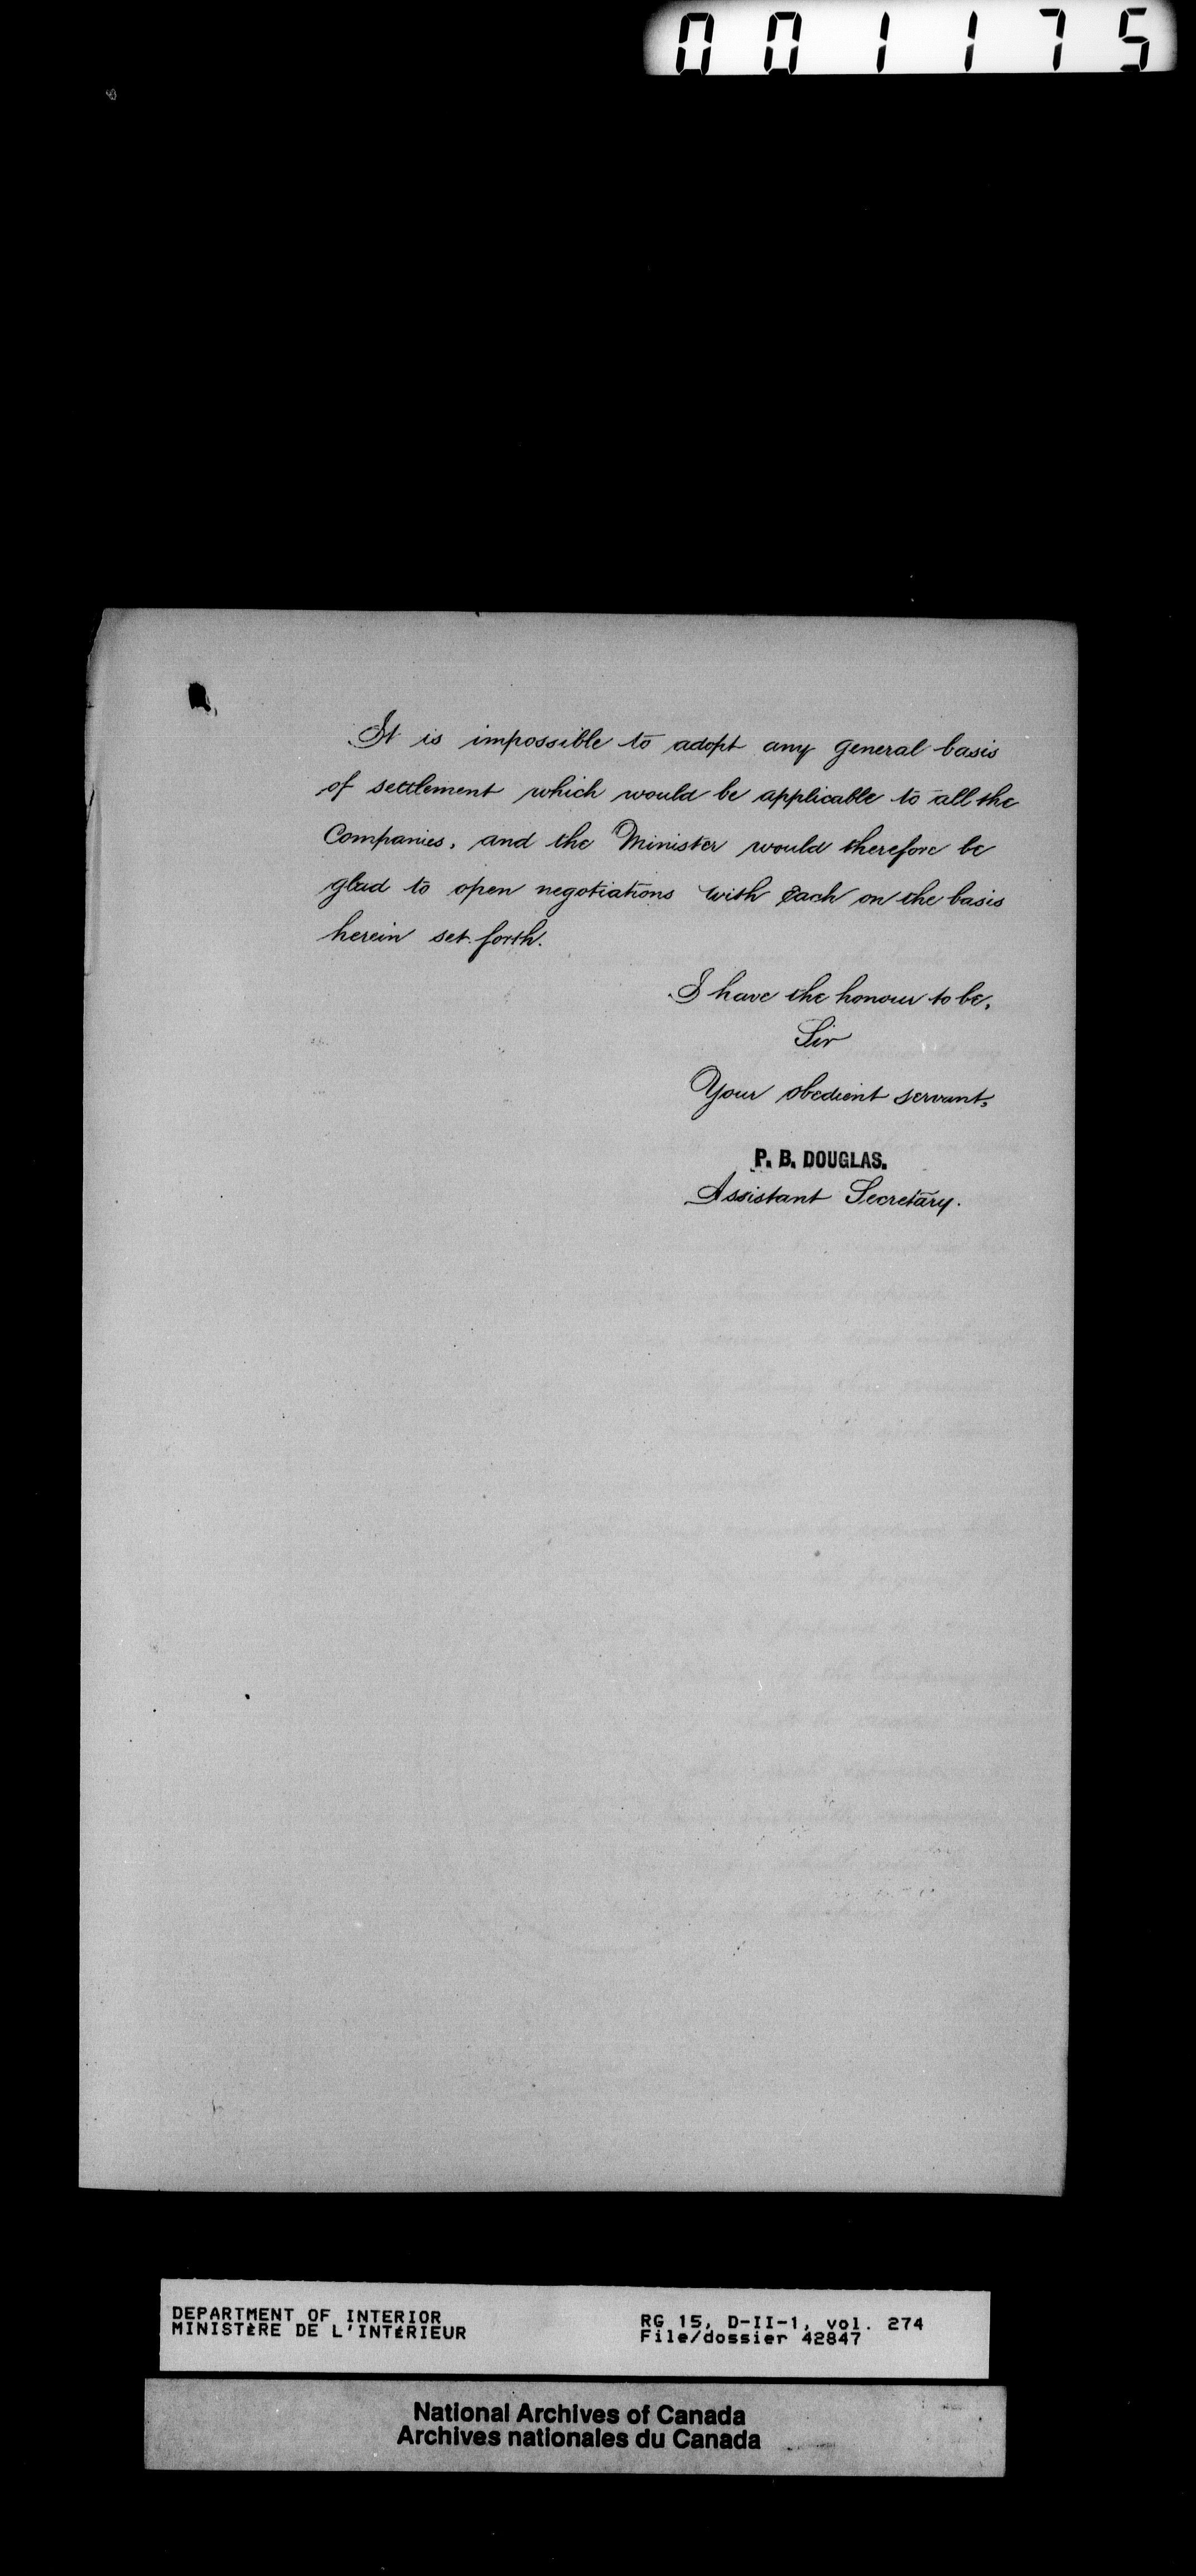 001175
It is impossible to adopt any general basis
of settlement which would be applicable to all the
Companies, and the Minister would therefore be
glad to open negotiations with each on the basis
herein set forth.
I have the honour to be,
Sir
Your obedient servant,
P. B. DOUGLAS.
Assistant Secretary.
DEPARTMENT OF INTERIOR
MINISTÈRE DE L'INTÉRIEUR
RG 15, D-II-1, vol. 274
File/dossier 42847
National Archives of Canada
Archives nationales du Canada